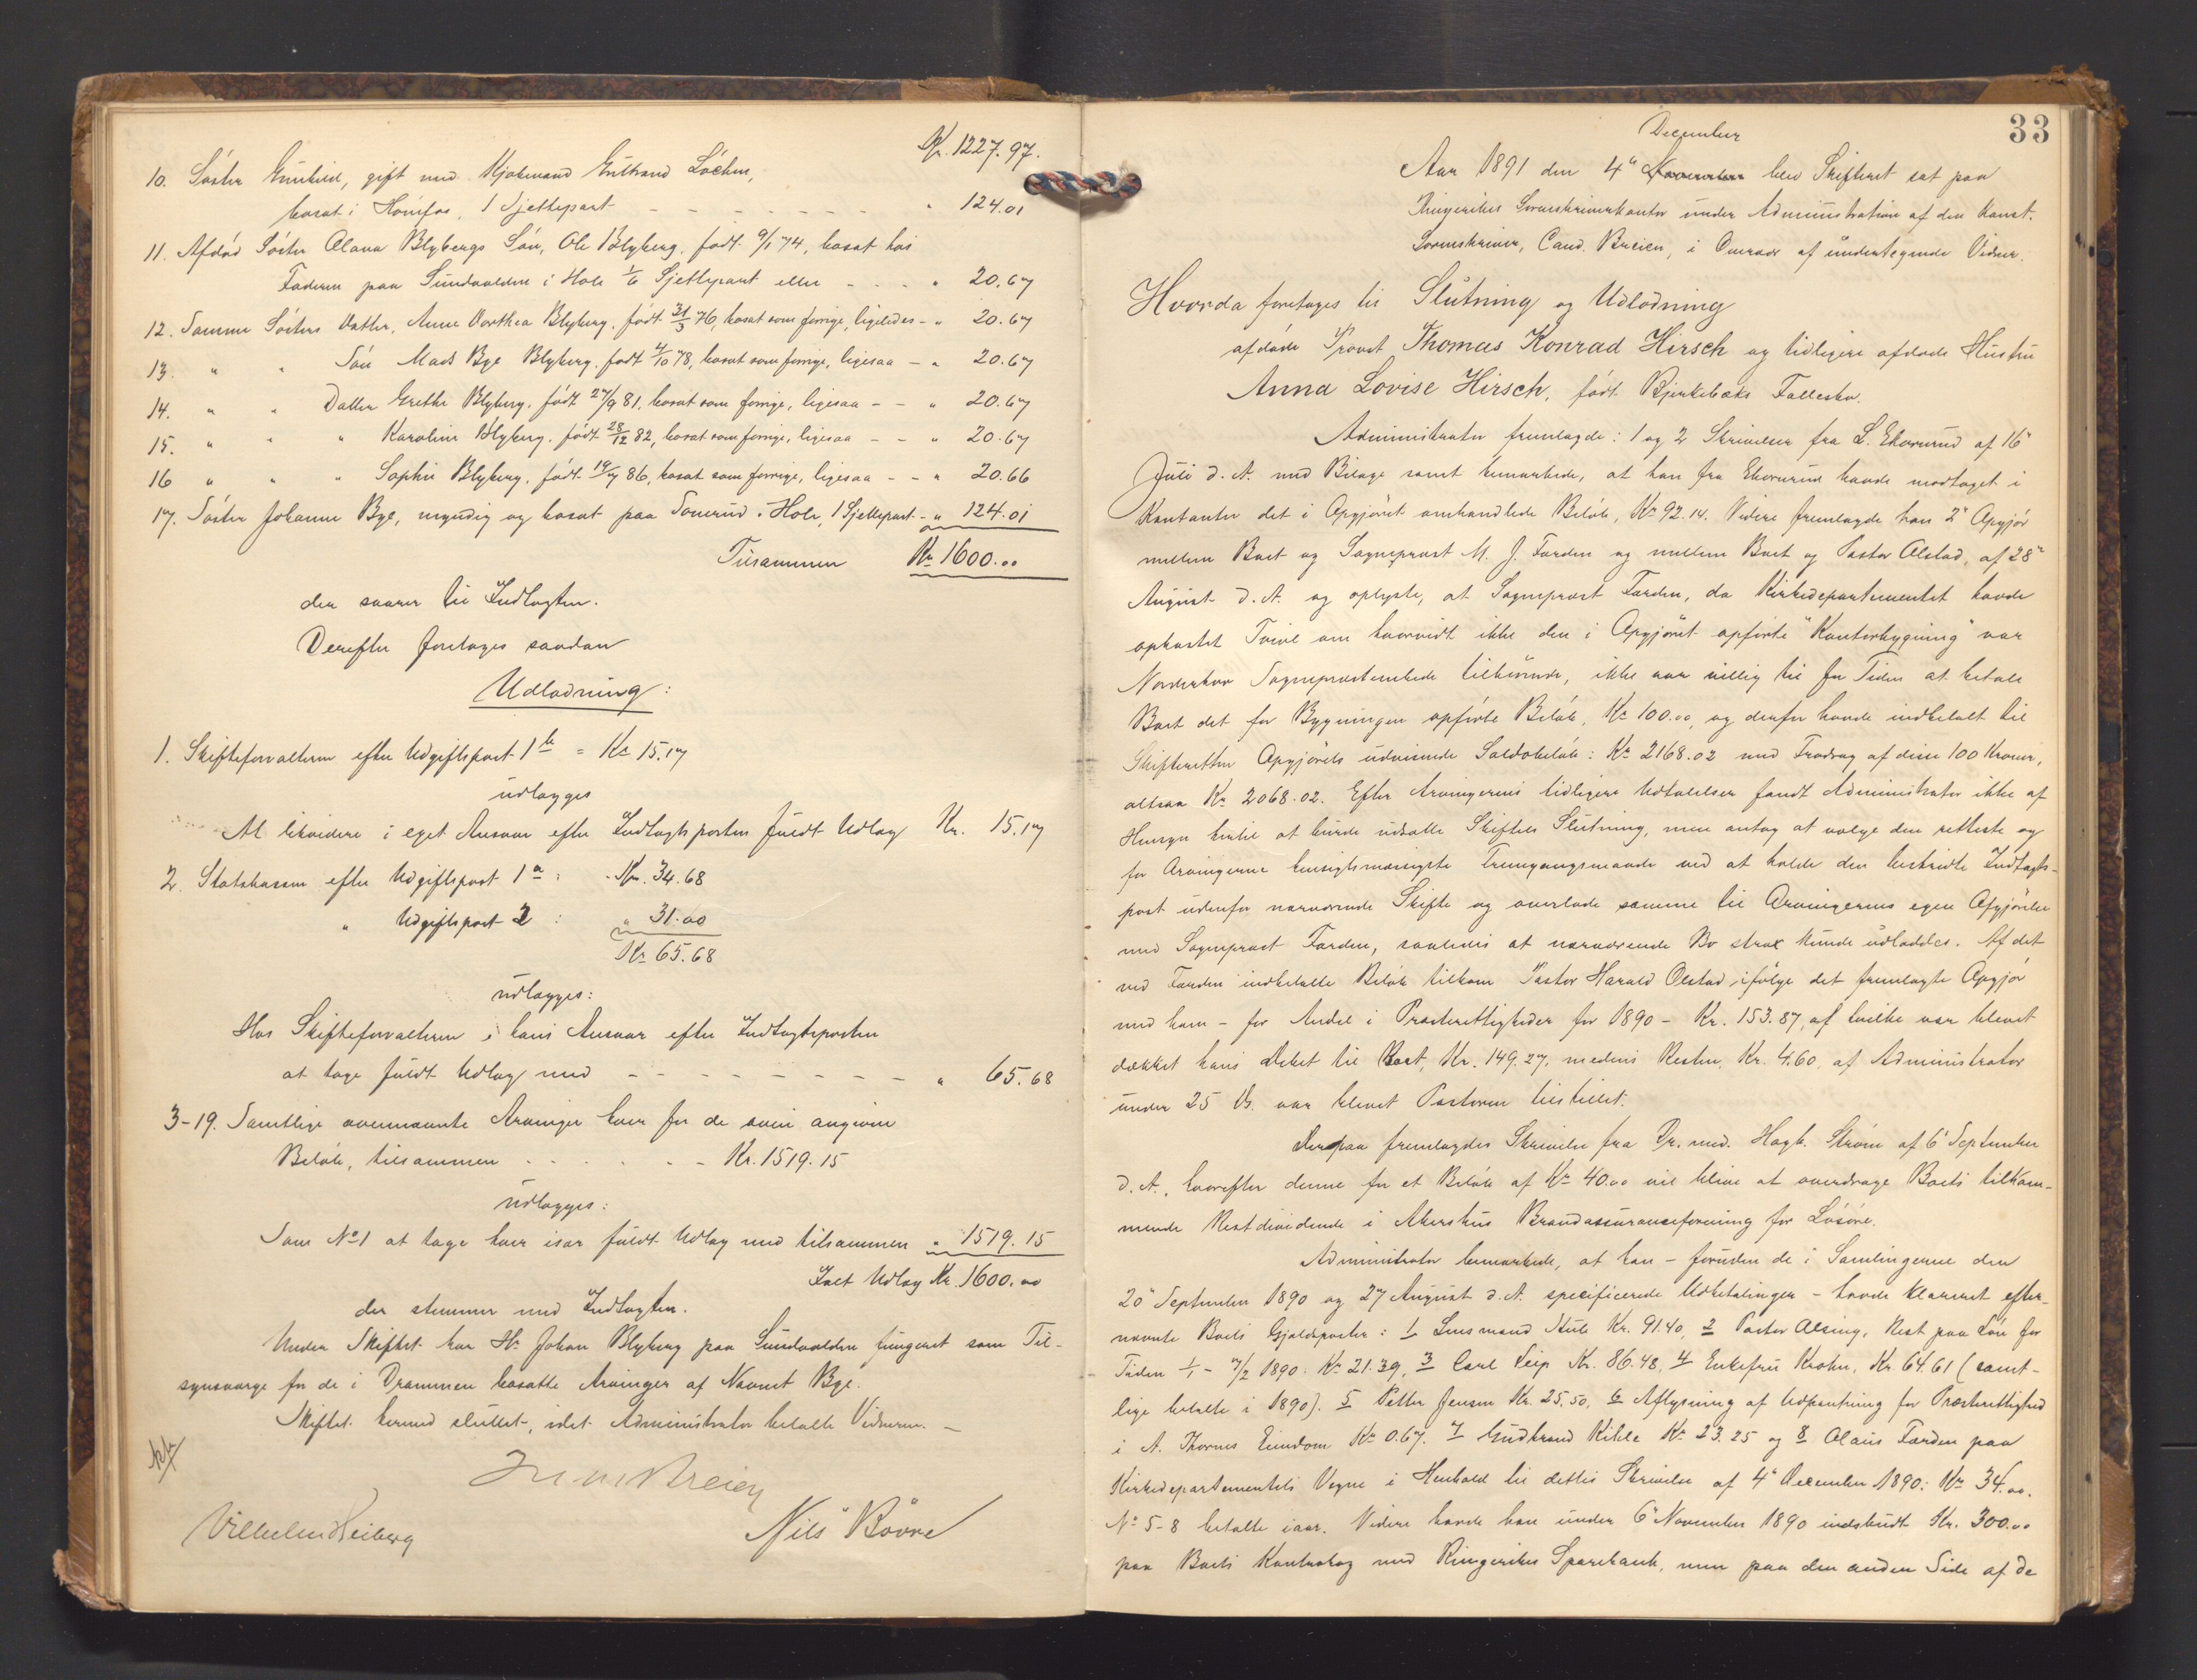 Kr. 1227.97.
10. Søster Gunhild, gift med Kjøbmand Gulbrand Løchen,
bosat i Hønefos, 1 Sjettepart - - - - - - - " 124.01
11. Afdød Søster Olava Blybergs Søn, Ole Blyberg, født 9/1 74, bosat hos
Faderen paa Sundvolden i Hole 1/6 Sjettepart eller - - - - " 20.67
12. Samme Søsters Datter, Anne Dorthea Blyberg, født 31/3 76, bosat som forrige, ligeledes - " 20.67
13. " " Søn Mads Bye Blyberg, født 4/10 78, bosat som forrige, ligesaa - " 20.67
14. " " Datter Grethe Blyberg, født 27/9 81, bosat som forrige, ligesaa - - " 20.67
15. " " " Karoline Blyberg, født 28/12 82, bosat som forrige, ligesaa - - " 20.67
16 " " " Sophie Blyberg, født 19/7 86, bosat som forrige, ligesaa - - " 20.66
17. Søster Johanne Bye, myndig og bosat paa Sonerud i Hole, 1 Sjettepart - " 124.01
Tilsammen Kr. 1600.00
der svarer til Indtægten.
Derefter foretoges saadan
Udlodning:
1. Skifteforvalteren efter Udgiftspost 1 b = Kr. 15.17
udlægges
At likvidere i eget Ansvar efter Indtægtsposten fuldt Udlæg Kr. 15.17
2. Statskassen efter Udgiftspost 1 a : Kr. 34.68
" Udgiftspost 2 : " 31.00
Kr. 65.68
udlægges:
Hos Skifteforvalteren i hans Ansvar efter Indtægtsposten
at tage fuldt Udlæg med - - - - - - - - - " 65.68
3-19. Samtlige ovennævnte Arvinger hver for de oven angivne
Beløb, tilsammen - - - - - - - Kr. 1519.15
Udlægges:
Som No 1 at tage hver især fuldt Udlæg med tilsammen " 1519.15
Ialt Udlæg Kr. 1600.00
der stemmer med Indtægten.
Under Skiftet har Hr. Johan Blyberg paa Sundvolden fungeret som Til-
synsværge for de i Drammen bosatte Arvinger af Navnet Bye.
Skiftet hermed sluttet, idet Administrator betalte Vidnerne. -
Breien
Vilhelm Heiberg Nils Bøvre
33
December
Aar 1891 den 4de November blev Skifteret sat paa
Ringerikes Sorenskriverkontor under Administration af den Konst.
Sorenskriver, Cand. Breien, i Overvær af undertegnede Vidner.
Hvorda foretages til Slutning og Udlodning
afdøde Provst Thomas Konrad Hirsch og tidligere afdøde Hustru
Anna Lovise Hirsch, født Bjerkebæks Fællesbo.
Administrator fremlagde: 1 og 2 Skrivelser fra L. Ekornrud af 16de
Juli d. A. med Bilage samt bemærkede, at han fra Ekornrud havde modtaget i
Kontanter det i Opgjøret omhandlede Beløb, Kr. 92.14. Videre fremlagde han 2de Opgjør
mellem Boet og Sogneprest M. J. Færden og mellem Boet og Pastor Olstad, af 28de
August d. A. og oplyste, at Sogneprest Færden, da Kirkedepartementet havde
opkastet Tvivl om hvorvidt ikke den i Opgjøret opførte "Kontorbygning" var
Norderhov Sogneprestembede tilhørende, ikke var villig til for Tiden at betale
Boet det for Bygningen opførte Beløb, Kr. 100.00, og derfor havde indbetalt til
Skifteretten Opgjørets udvisende Saldobeløb: Kr. 2168.02 med Fradrag af disse 100 Kroner,
altsaa Kr. 2068.02. Efter Arvingernes tidligere Udtalelser fandt Administrator ikke af
Hensyn hertil at burde udsætte Skiftets Slutning, men antog at vælge den retteste og
for Arvingerne hensigtsmæssigste Fremgangsmaade ved at holde den bestridte Indtægts-
post udenfor nærværende Skifte og overlade samme til Arvingernes egen Afgjørelse
med Sogneprest Færden, saaledes at nærværende Bo strax kunde udloddes. Af det
ved Færden indbetalte Beløb tilkom Pastor Harald Olstad ifølge det fremlagte Opgjør
med ham - for Andel i Presterettigheder for 1890 - Kr. 153.87, af hvilke var blevet
dækket hans Debet til Boet, Kr. 149.27, medens Resten, Kr. 4.60, af Administrator
under 25 ds. var blevet Pastoren tilstillet.
Derpaa fremlagdes Skrivelse fra Dr. med. Hagb. Strøm af 6te September
d. A., hvorefter denne for et Beløb af Kr. 40.00 vil blive at overdrage Boets tilkom-
mende Restdividende i Akershus Brandassuranceforening for Løsøre.
Administrator bemærkede, at han - foruden de i Samlingerne den
20de September 1890 og 27 August d. A. specificerede Udbetalinger - havde klareret efter-
nævnte Boets Gjældsposter: 1 Lensmand Hule Kr. 91.40, 2 Pastor Alsing, Rest paa Løn for
Tiden 1/1 - 7/2 1890. Kr. 21.39, 3 Carl Leip Kr. 86.48, 4 Enkefru Krohn, Kr. 64.61 (samt-
lige betalte i 1890). 5 Petter Jensen Kr. 25.50, 6 Aflysning af Udpantning for Presterettighed
i A. Thornes Eiendom Kr. 0.67. 7 Gudbrand Kihle Kr. 23.25 og 8 Olaus Færden paa
Kirkedepartementets Vegne i Henhold til dettes Skrivelse af 4de December 1890: Kr. 34.00.
No 5-8 betalte iaar. Videre havde han under 6te November 1890 indskudt Kr. 300.00
paa Boets Kontrabog med Ringerikes Sparebank, men paa den anden Side af de